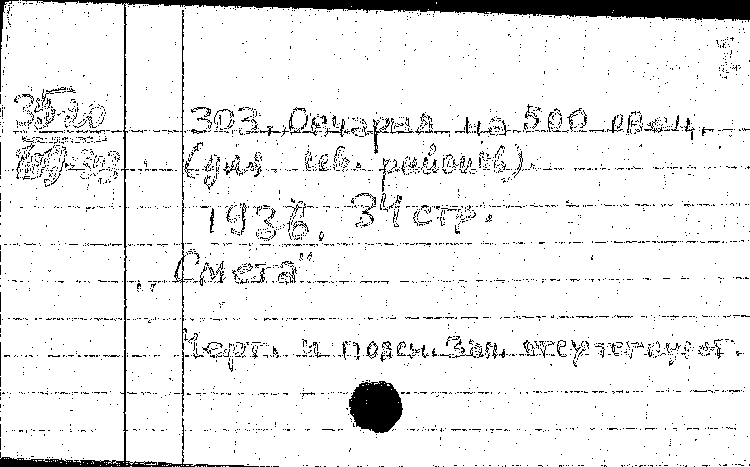 3520
303. Овчарня на 500 овец.
(для сев. районов).
1936. 34 стр.
„Смета"
Черт. и поясн. зап. отсутствуют.